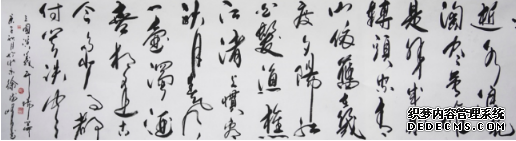 逝水浪花
淘尽英雄
是非成败
转头空青
山依旧几
度夕阳红
白发渔樵
江渚上惯看
秋月春风
一壶浊酒
喜相逢古
今多少事都
付笑谈中
织梦内容管理系统
DEDECMS.COM